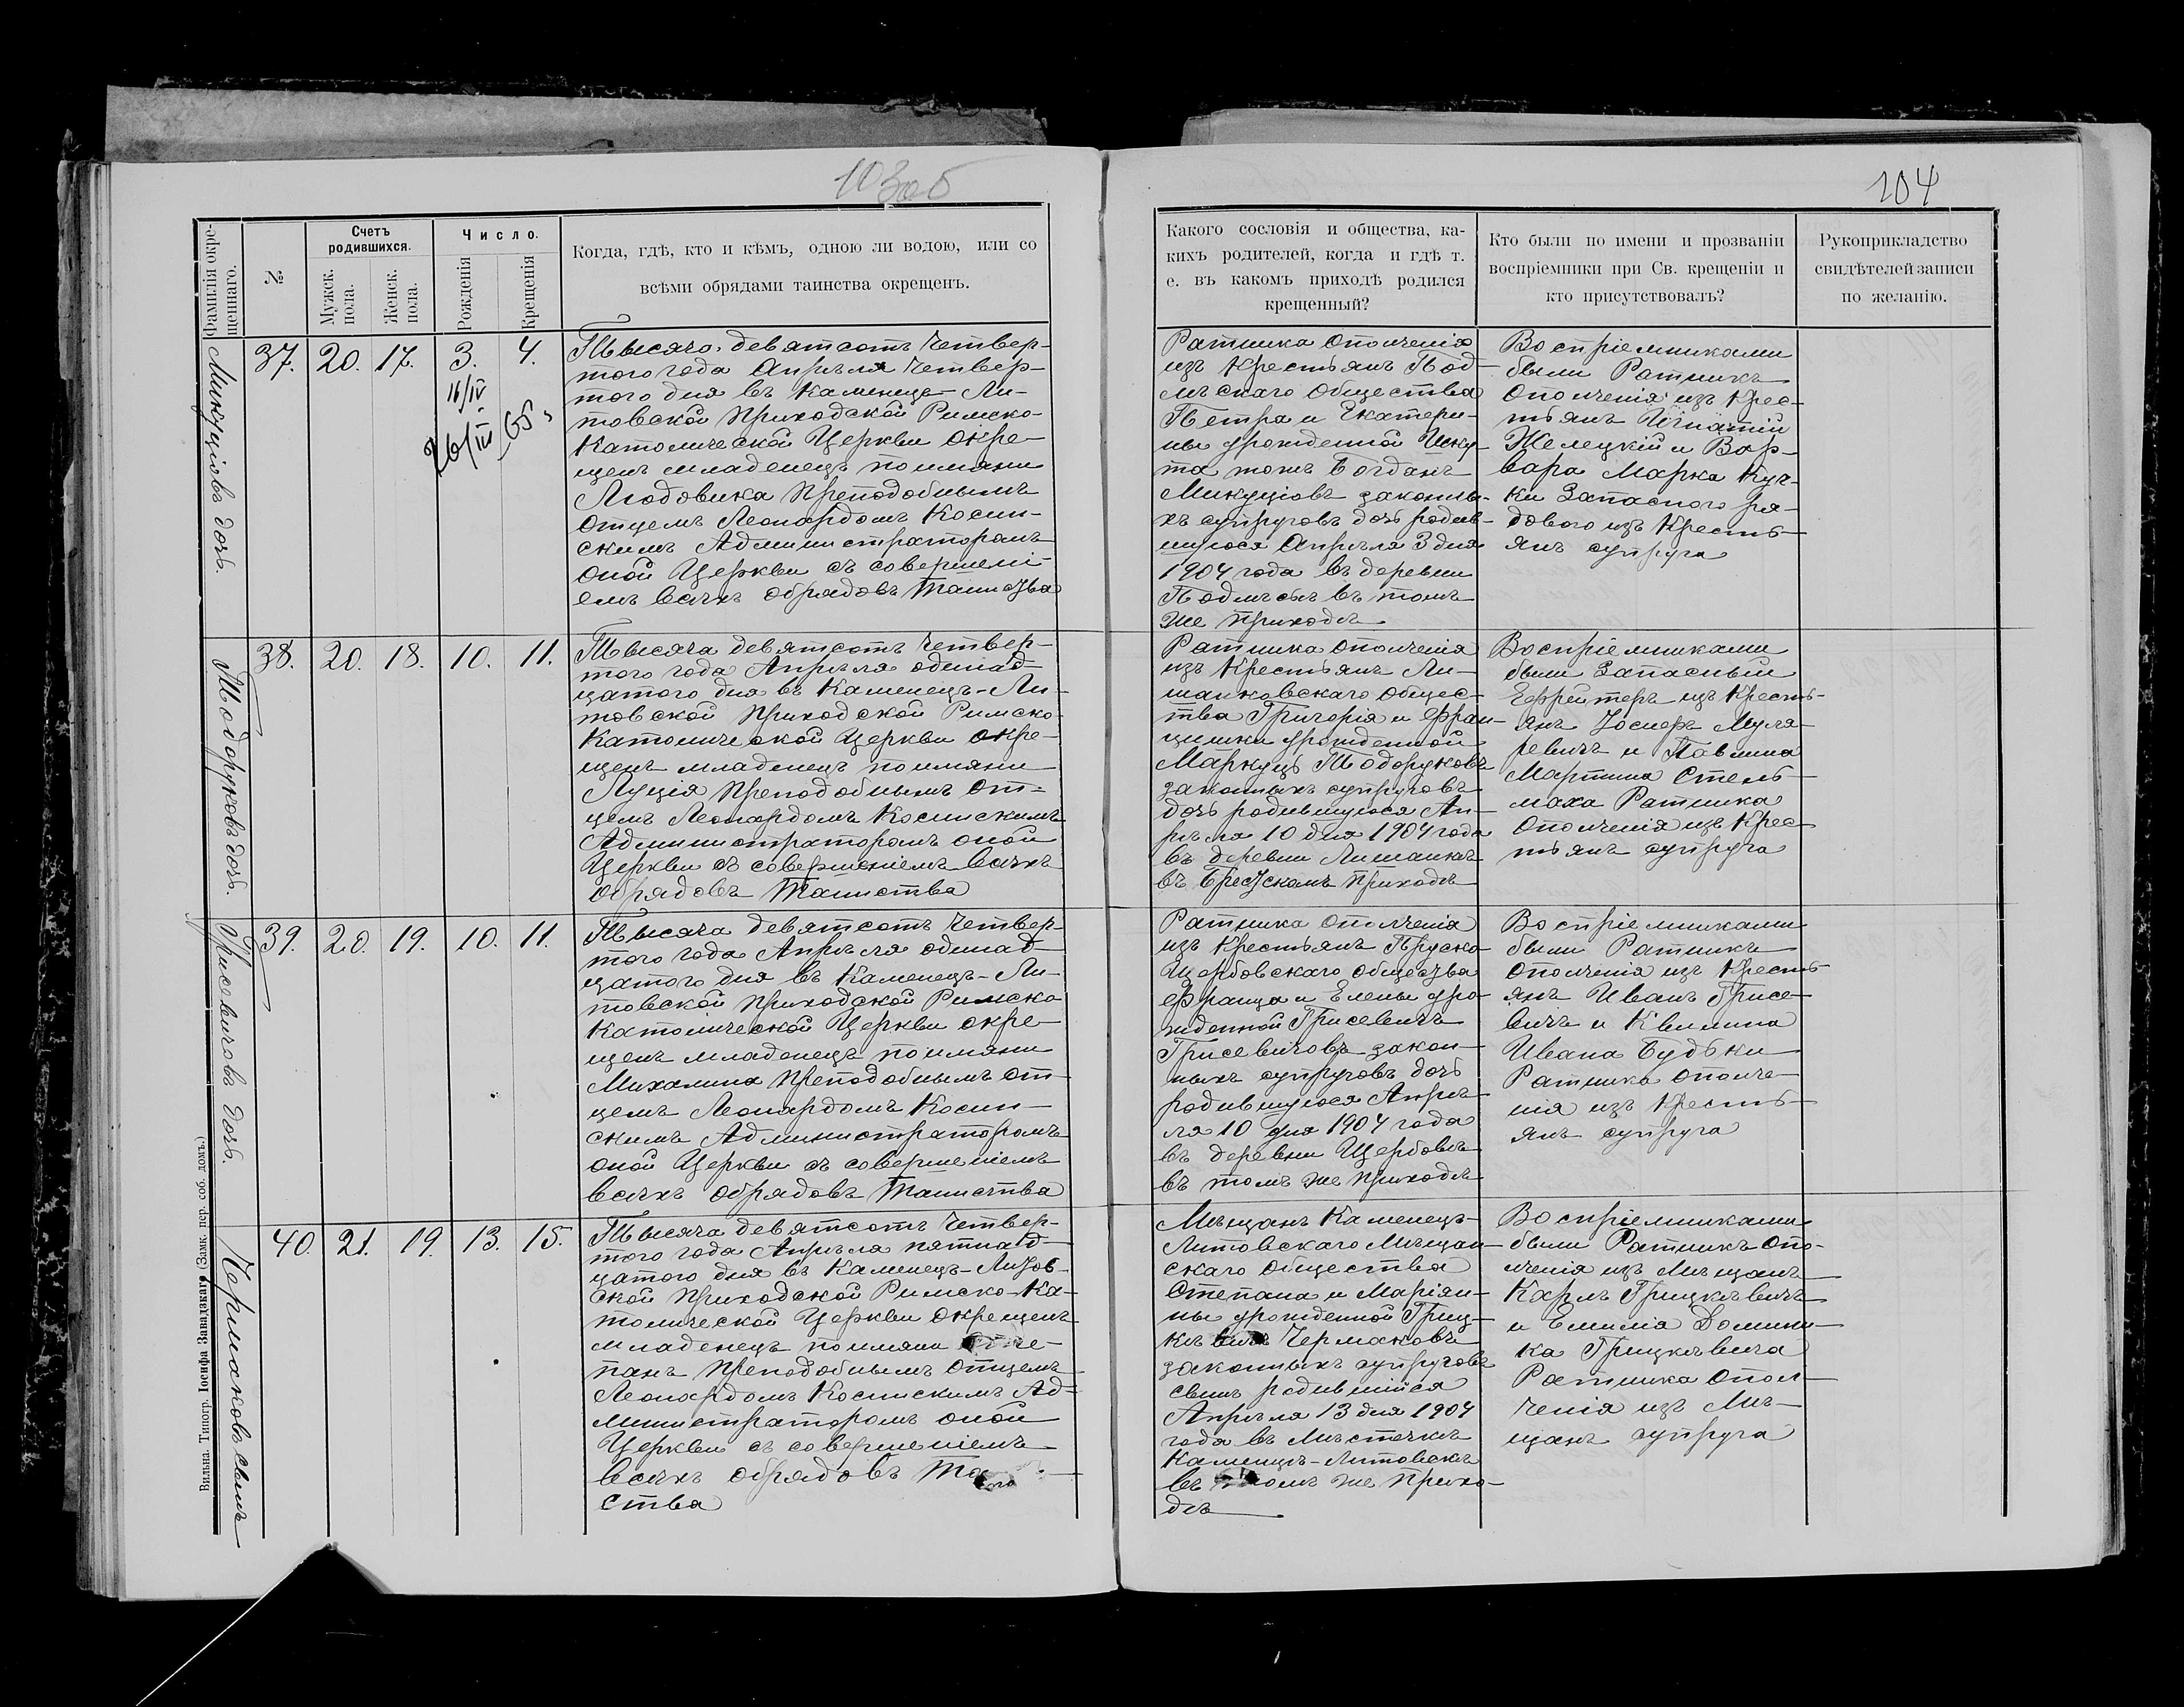 103об
104
Фамилія окре-
щеннаго.
№
Счетъ
родившихся.
Мужск.
пола.
Женск.
пола.
Число.
Рожденія
Крещенія
Когда, гдѣ, кто и кѣмъ, одною ли водою, или со
всѣми обрядами таинства окрещенъ.
Какого сословія и общества, ка-
кихъ родителей, когда и гдѣ т.
е. въ какомъ приходѣ родился
крещенный?
Кто были по имени и прозваніи
воспріемники при Св. крещеніи и
кто присутствовалъ?
Рукоприкладство
свидѣтелей записи
по желанію.
Микуціовъ дочь.
37. 20. 17. 3. 4.
16/IV
26/III 65
Тысяча девятсотъ Четвер-
того года Апрѣля Четвер-
того дня въ Каменецъ-Ли-
товской Приходской Римско-
Католической Церкви окре-
щенъ младенецъ по имяни
Людовика Преподобнымъ
Отцемъ Леонардомъ Косин-
скимъ Администраторомъ
оной Церкви съ совершені-
емъ всѣхъ обрядовъ Таинства
Ратника Ополченія
изъ Крестьянъ Под-
лѣскаго Общества
Петра и Екатери-
ны урожденной
Микуціовъ законны-
хъ супруговъ дочь родив-
шуюся Апрѣля 3 дня
1904 года въ деревни
Подлѣсьѣ въ томъ
же Приходѣ
Воспріемниками
были Ратникъ
Ополченія изъ Крес-
тьянъ Игнатій
Желецкій и Вар-
вара Марка Куч-
ки Запаснаго ря-
дового изъ Кресть-
янъ супруга
Тодоруковъ дочь.
38. 20. 18. 10. 11.
Тысяча девятсотъ Четвер-
того года Апрѣля одинад-
цатого дня въ Каменецъ-Ли-
товской Приходской Римско-
Католической Церкви окре-
щенъ младенецъ по имяни
Луція Преподобнымъ От-
цемъ Леонардомъ Косинскимъ
Администраторомъ оной
Церкви съ совершеніемъ всѣхъ
обрядовъ Таинства
Ратника Ополченія
изъ Крестьянъ Ли-
шанковскаго Общес-
тва Григорія и Фран-
цишки урожденной
Маркуць Тодоруковъ
законныхъ супруговъ
дочь родившуюся Ап-
рѣля 10 дня 1904 года
въ деревни Лишанкѣ
въ Брестскомъ Приходѣ
Воспріемниками
были Запасный
Ефрейтеръ изъ Кресть-
янъ Іосифъ Муля-
ревичъ и Павлина
Мартина Стель-
маха Ратника
Ополченія изъ Крес-
тьянъ супруга
Грисевичовъ дочь.
39. 20. 19. 10. 11.
Тысяча девятсотъ Четвер-
того года Апрѣля одинад-
цатого дня въ Каменецъ-Ли-
товской Приходской Римско
Католической Церкви окре-
щенъ младенецъ по имяни
Михалина Преподобнымъ От-
цемъ Леонардомъ Косин-
скимъ Администраторомъ
оной Церкви съ совершеніемъ
всѣхъ обрядовъ Таинства
Ратника Ополченія
изъ Крестьянъ Пруско
Щербовскаго Общества
Франца и Елены уро-
жденной Грисевичъ
Грисевичовъ закон-
ныхъ супруговъ дочь
родившуюся Апрѣ-
ля 10 дня 1904 года
въ деревни Щербовѣ
въ томъ же Приходѣ
Воспріемниками
были Ратникъ
Ополченія изъ Кресть-
янъ Иванъ Грисе-
вичъ и Квилина
Ивана Будьки
Ратника Ополче-
нія изъ Кресть-
янъ супруга
Чермаковъ сынъ
40. 21. 19. 13. 15.
Тысяча девятсотъ Четвер-
того года Апрѣля пятнад-
цатого дня въ Каменецъ-Литов-
ской Приходской Римско-Ка-
толической Церкви окрещенъ
младенецъ по имяни Сте-
панъ Преподобнымъ Отцемъ
Леонардомъ Косинскимъ Ад-
министраторомъ оной
Церкви съ совершеніемъ
всѣхъ обрядовъ
ства
Мѣщанъ Каменецъ-
Литовскаго Мѣщан-
скаго Общества
Степана и Маріян-
ны урожденной Гриц-
кѣвичъ Чермаковъ
законныхъ супруговъ
сынъ родившійся
Апрѣля 13 дня 1904
года въ Мѣстечкѣ
Каменцѣ-Литовскѣ
въ томъ же Прихо-
дѣ
Воспріемниками
были Ратникъ Опо-
лченія изъ Мѣщанъ
Карлъ Грицкѣвичъ
и Емилія Домини-
ка Грицкѣвича
Ратника Опол-
ченія изъ Мѣ-
щанъ супруга
Вильна. Типогр. Іосифа Завадзкаго (Замк. пер. соб. домъ.)